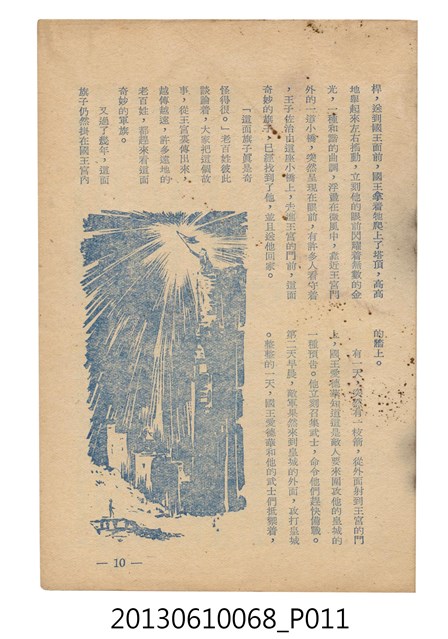 桿，送到國王面前，國王拿着牠爬上了塔頂，高高
地舉起來左右搖動，立刻他的眼前閃耀着無數的金
光，一種和諧的曲調，浮載在微風中，靠近王宮門
外的一道小橋，突然呈現在眼前，有許多人看守着
，王子佐治由這座小橋上，走進王宮的門前，這面
奇妙的旗子，已經找到了他，並且送他回家。
「這面旗子眞是奇
怪得很。」老百姓彼此
談論着，大家把這個故
事，從王宮裏傳出來，
越傳越遠，許多遠地的
老百姓，都趕來看這面
奇妙的軍旗。
又過了幾年，這面
旗子仍然掛在國王宮內
的牆上。
有一天，突然有一枝箭，從外面射到王宮的門
上，國王愛德華知道這是敵人要來圍攻他的皇城的
一種預告。他立刻召集武士，命令他們趕快備戰。
第二天早晨，敵軍果然來到皇城的外面，攻打皇城
。整整的一天，國王愛德華和他的武士們抵禦着，
— 10 —
20130610068_P011